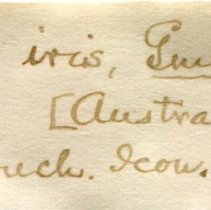 iris, Gm
[Austra
uch. Icon.